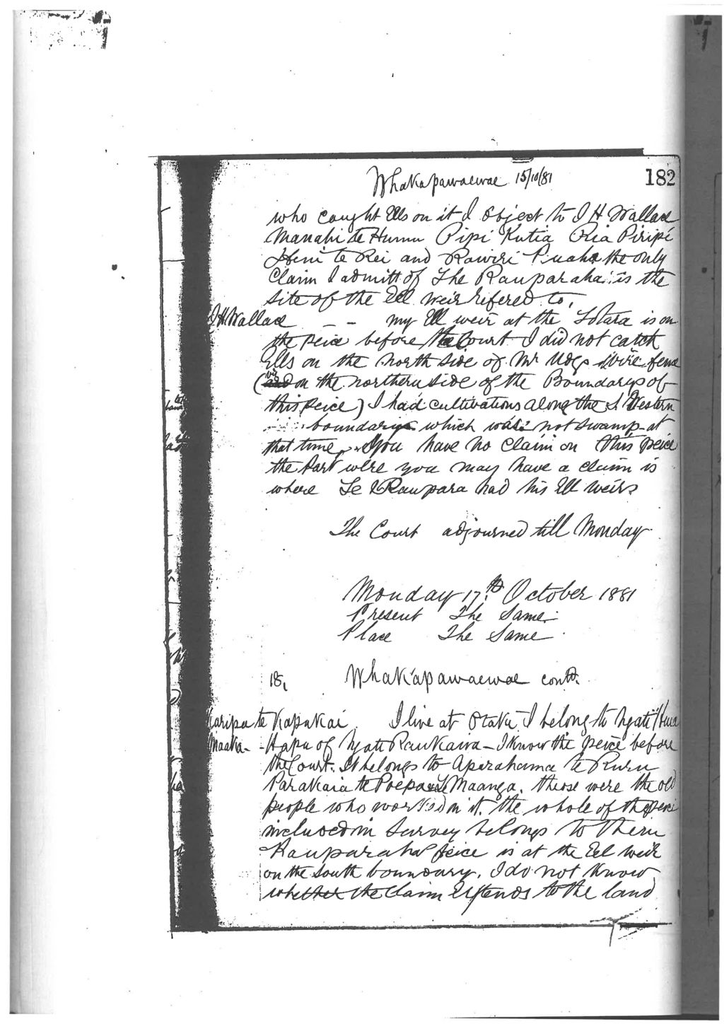 Whakapawaewae 15/10/81 182
who caught Ells on it I object to I H Wallace
Manahi te Humu Pipi Kutia Ria Piripi
Heni te Rei and Rawiri Puaha the only
Claim I admitt of Te Rauparaha is the
site of the Eel weir refered to.
I H Wallace — — my Ell weir at the Totara is on
the peice before the Court I did not catch
Ells on the north side of Mr wire fence
( on the northern side of the Boundary of
this peice) I had cultivations along the S Western
boundary which was not swamp at
that time. You have no claim on this peice
the part were you may have a claim is
where Te Raupara had his Ell weirs
The Court adjourned till Monday
Monday 17th October 1881
Present The Same
Place The Same
18, Whakapawaewae contd.
Karipa te Kapukai I live at Otaki I belong to Ngati
Hapu of Ngati Raukawa — I know the peice before
the Court. It belongs to Aperahama te Ruru
Parakaia te Poepa & Maanga. these were the old
people who worked on it. the whole of the peice
included in Survey belongs to them
Rauparaha peice is at the Eel weir
on the south boundary. I do not know
whether the claim extends to the land